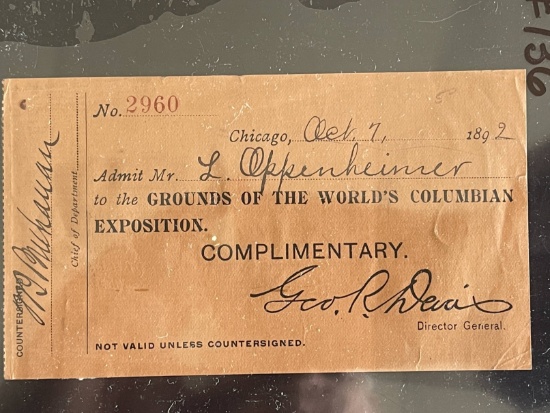 No. 2960
Chicago, Oct. 7, 1892
Admit Mr. L. Oppenheimer
to the GROUNDS OF THE WORLD'S COLUMBIAN
EXPOSITION.
COMPLIMENTARY.
Geo. R. Davis
Director General.
NOT VALID UNLESS COUNTERSIGNED.
COUNTERSIGNED
Buchanan
Chief of Department